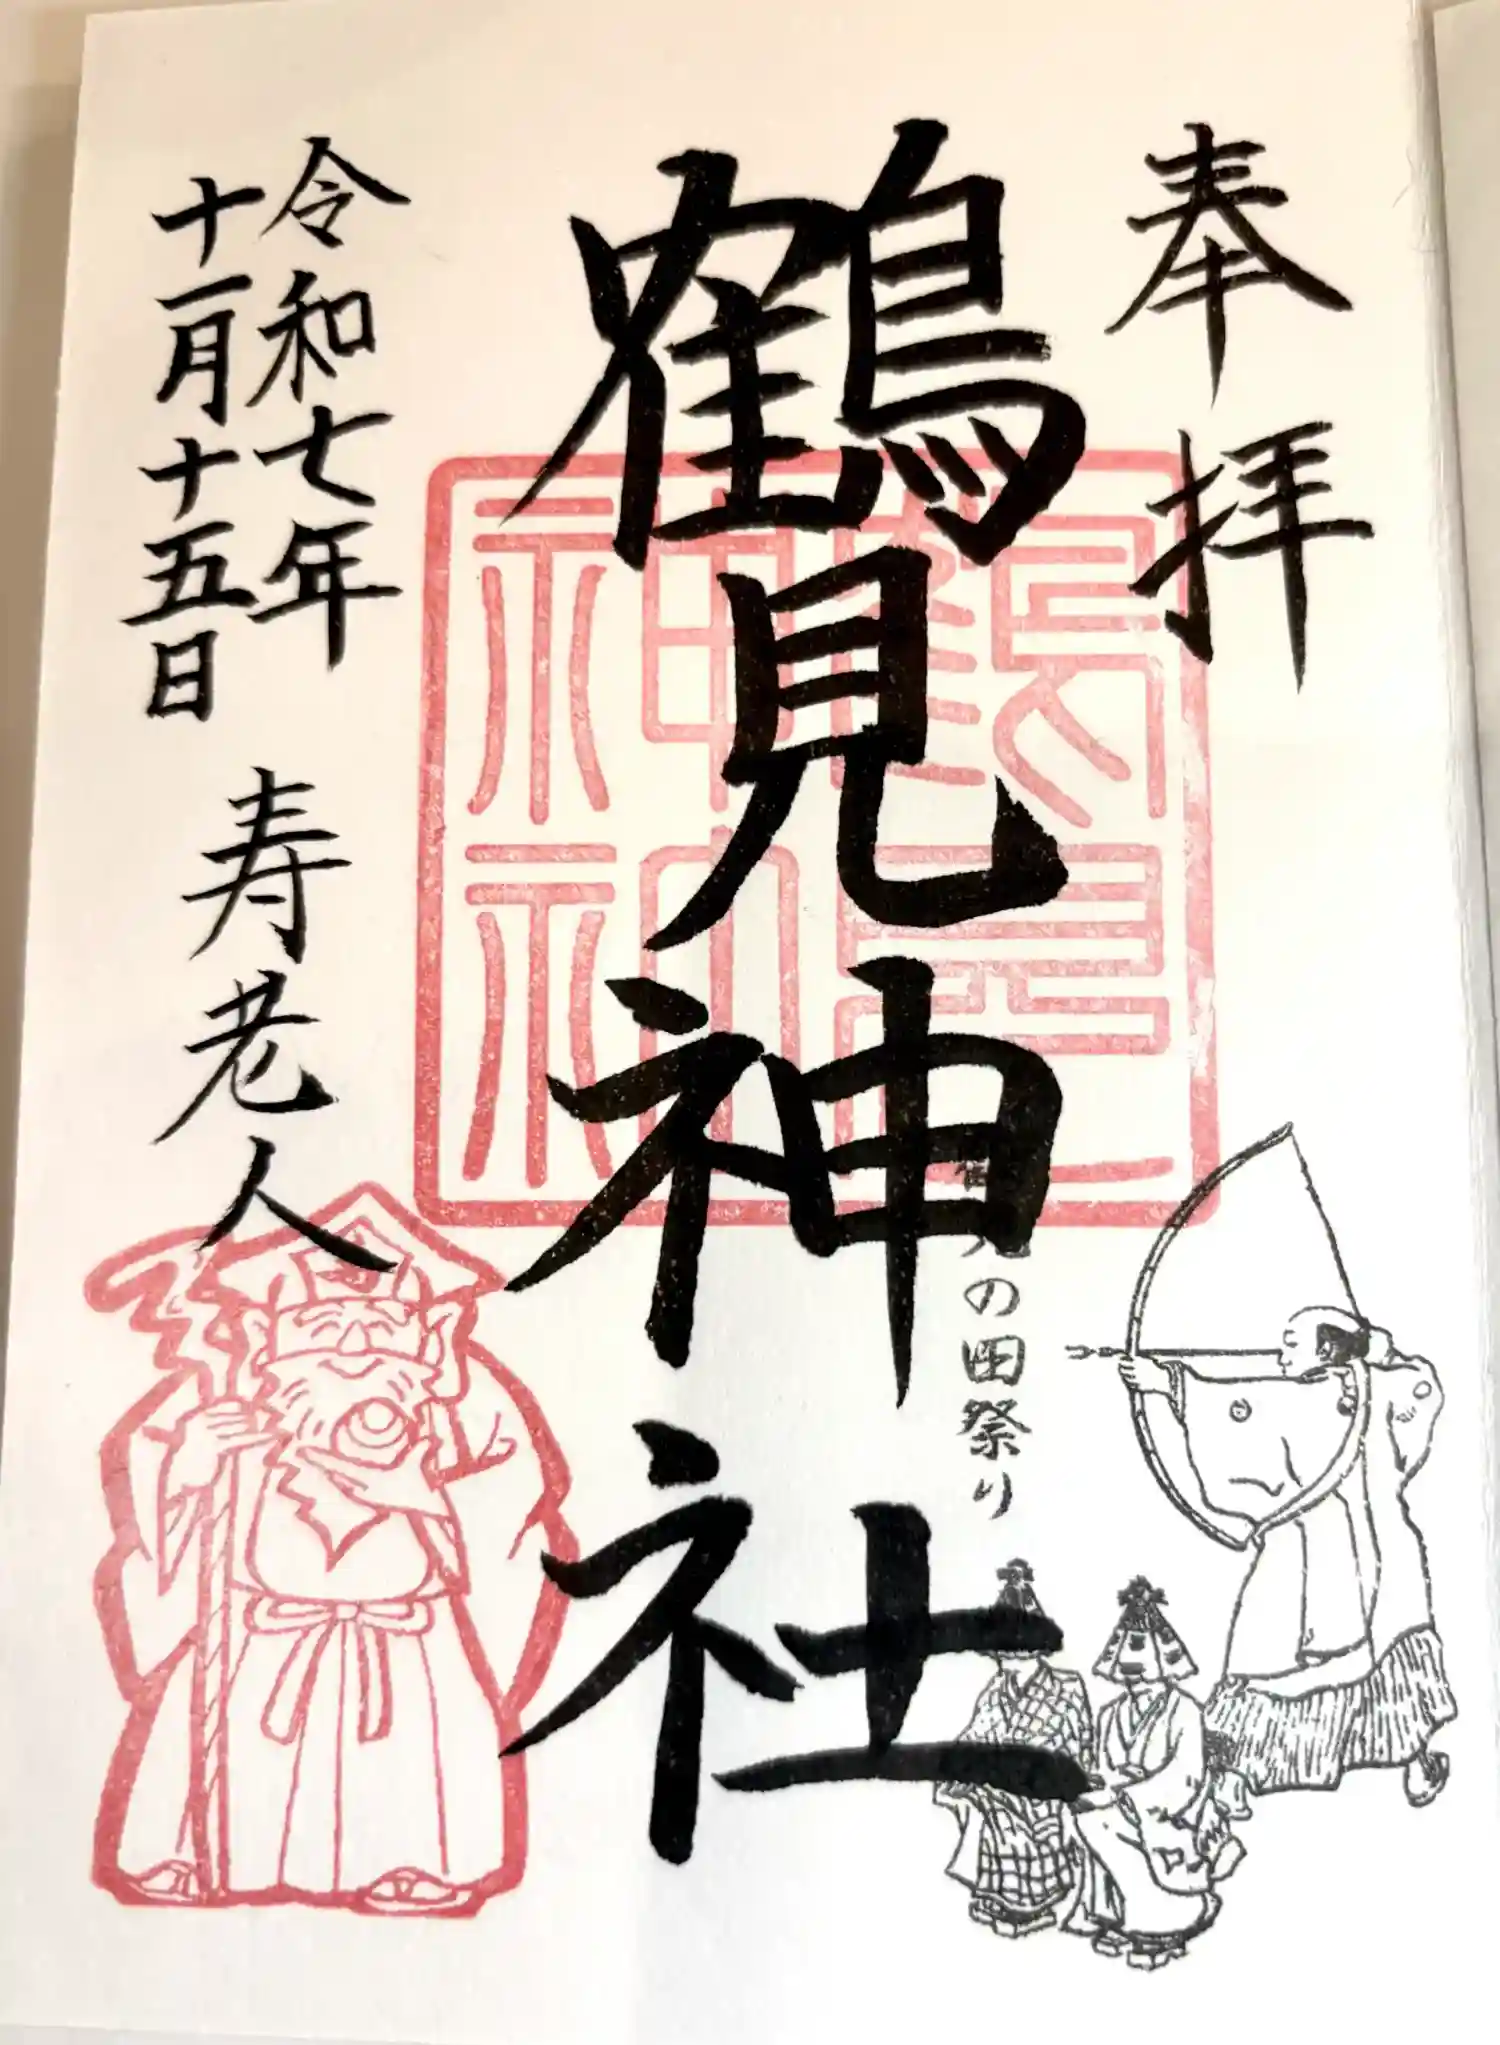 奉拝
鶴見神社
鶴見の田祭り
令和七年
十一月十五日
寿老人